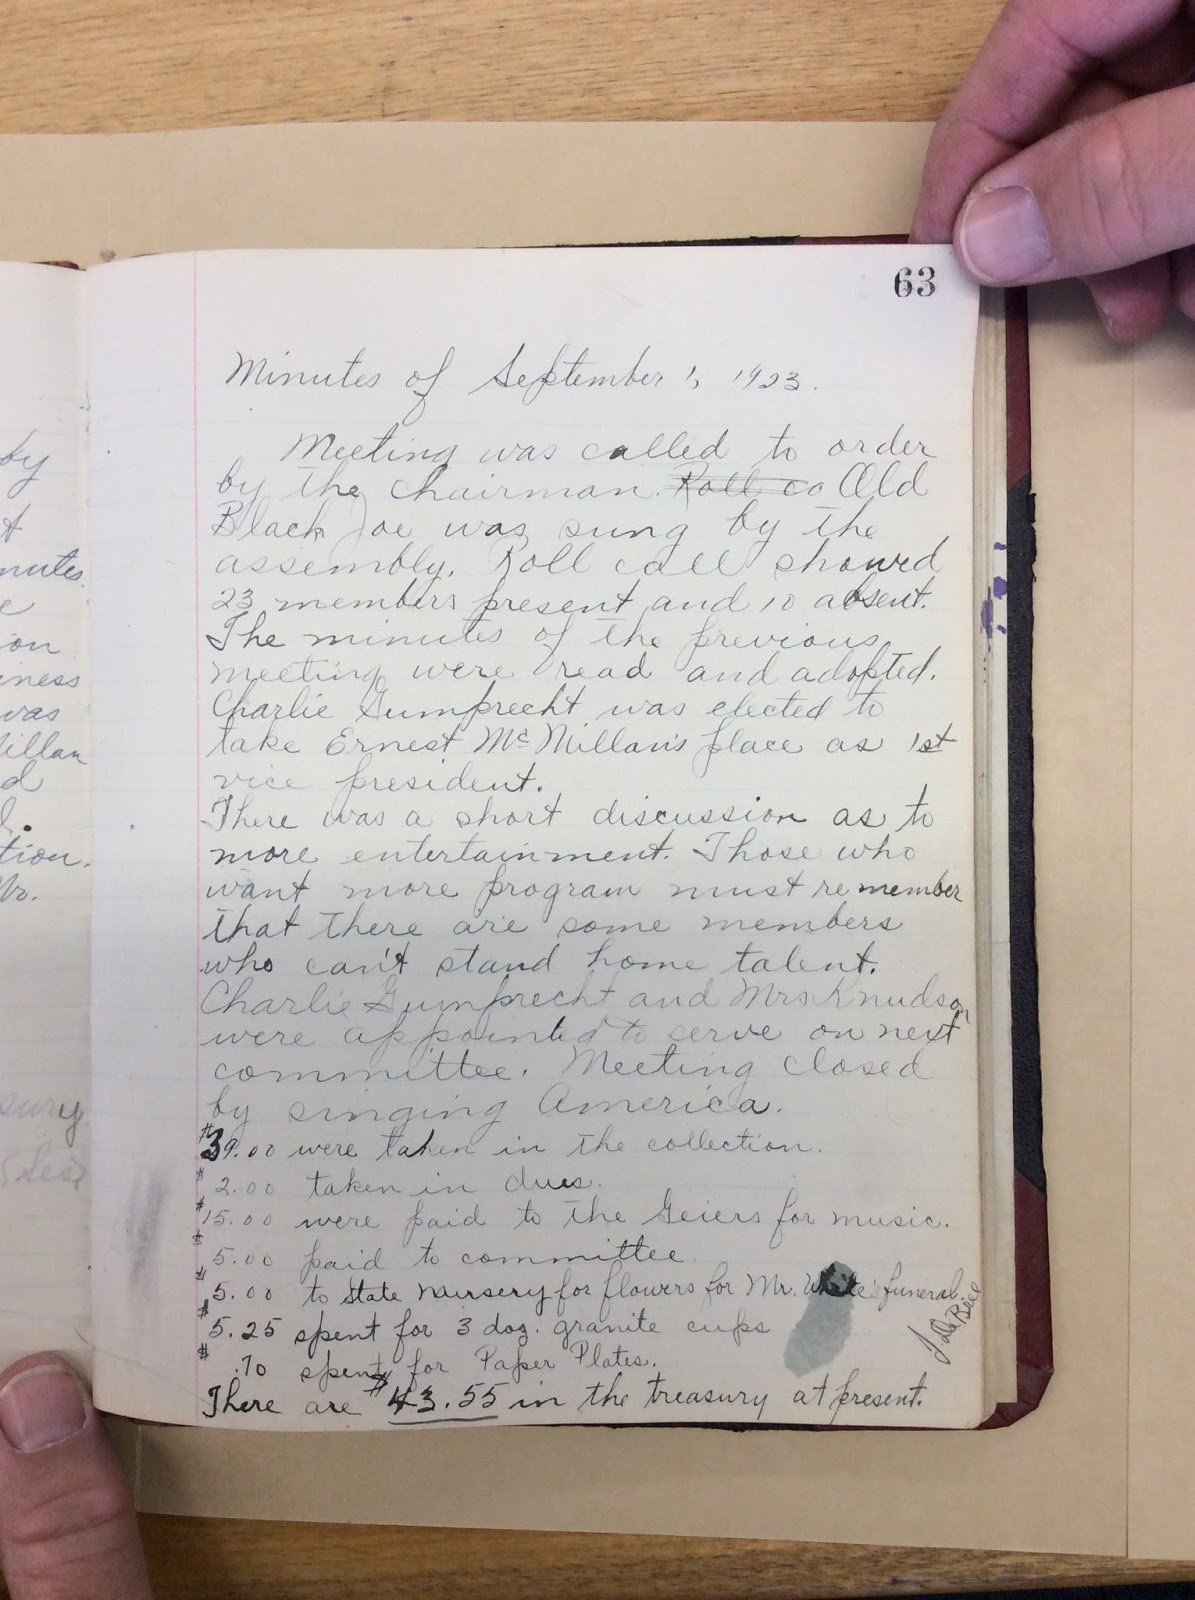 63
Minutes of September 1, 1923.
Meeting was called to order
by the chairman. Roll co Old
Black Joe was sung by the
assembly. Roll call showed
23 members present and 10 absent.
The minutes of the previous
meeting were read and adopted.
Charlie Gumprecht was elected to
take Ernest McMillan's place as 1st
vice president.
There was a short discussion as to
more entertainment. Those who
want more program must remember
that there are some members
who can't stand home talent.
Charlie Gumprecht and Mrs Knudson
were appointed to serve on next
committee. Meeting closed
by singing America.
$39.00 were taken in the collection.
$2.00 taken in dues.
$15.00 were paid to the Geiers for music.
$5.00 paid to committee
$5.00 to State Nursery for flowers for Mr. White's funeral.
$5.25 spent for 3 doz. granite cups
$.70 spent for Paper Plates.
There are $43.55 in the treasury at present.
by
nutes
ion
iness
was
illan
d
tion.
Mr.
sury